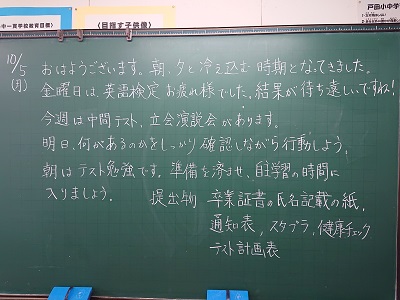 中一貫学校教育目標》
《目指す子供像》
戸田小中学
10/5
(月)
おはようございます。朝、夕と冷え込む時期となってきました。
金曜日は、英語検定お疲れ様でした。結果が待ち遠しいですね!
今週は中間テスト、立会演説会があります。
明日、何があるのかをしっかり確認しながら行動しよう。
朝はテスト勉強です。準備を済ませ、自主学習の時間に
入りましょう。
提出物 卒業証書の氏名記載の紙、
通知表、スタプラ、健康チェック
テスト計画表